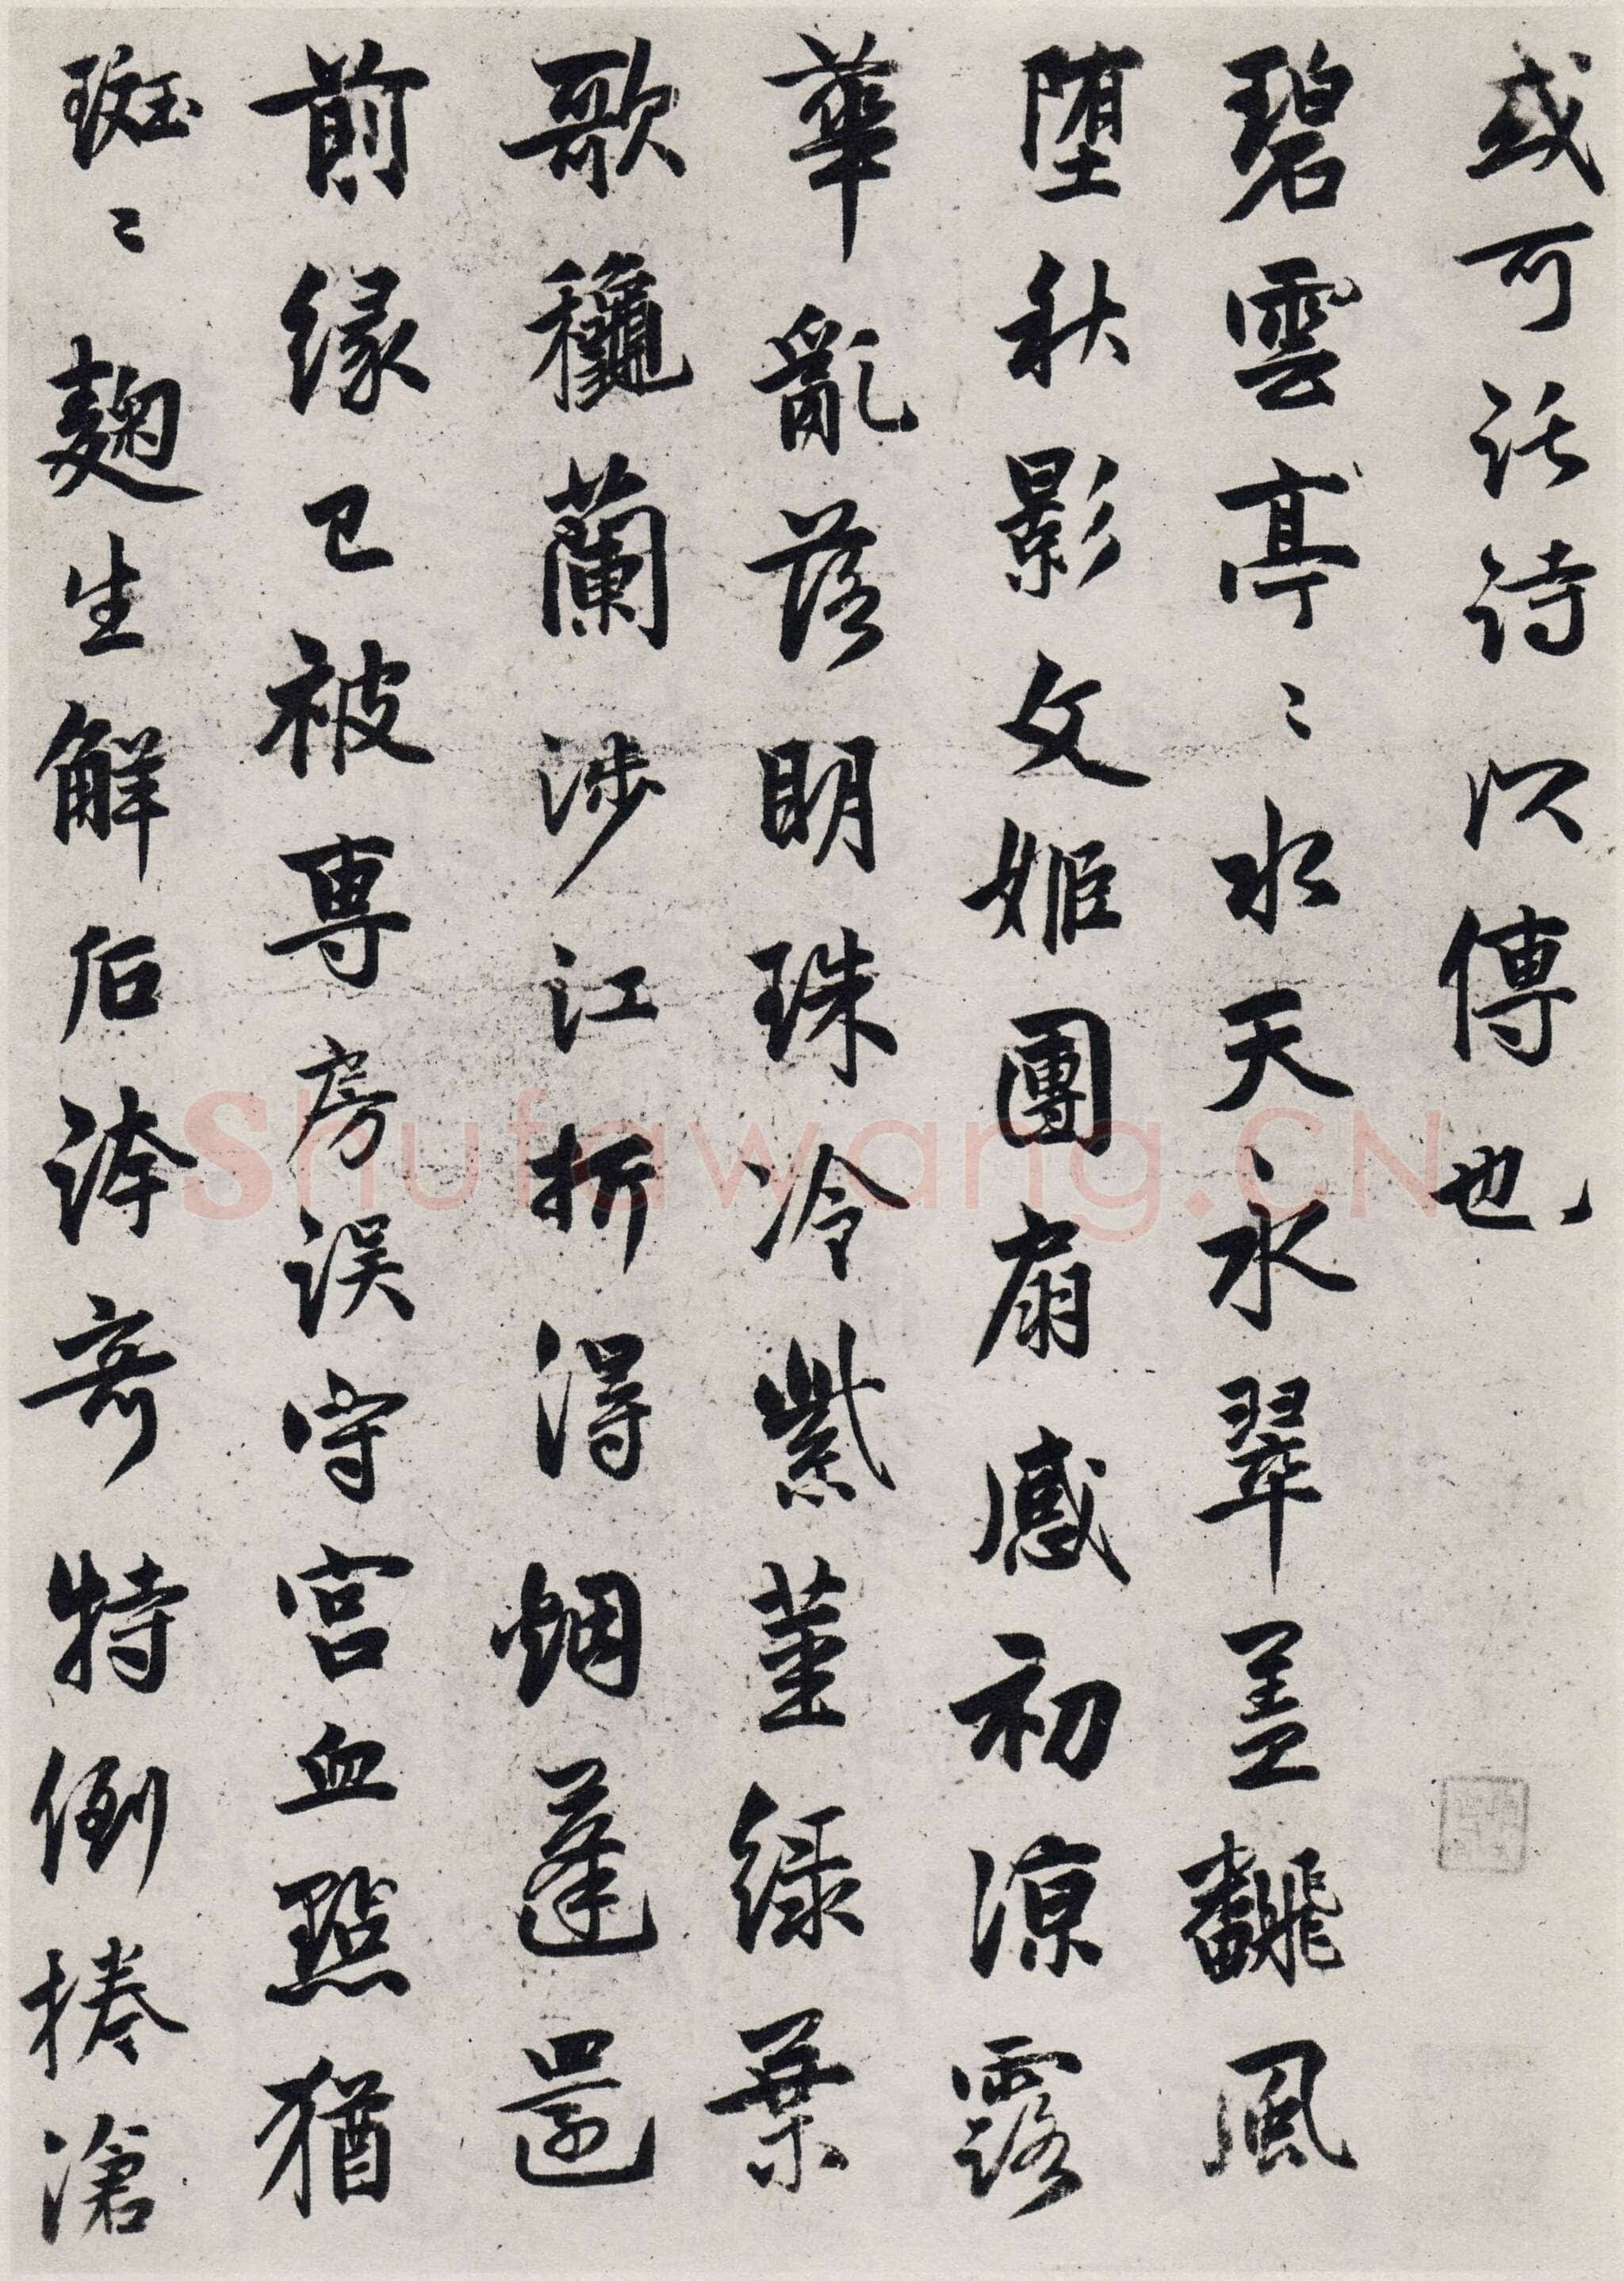 或可託詩以傳也
碧雲亭〻水天永翠蓋翻風
堕秋影文姬團扇感初涼露
華亂落明珠冷紫莖緑葉
歌穐蘭涉江折得烟蓬還
前緣已被專房誤守宮血點猶
斑〻麹生解后誇奇特倒捲滄
Shufawang.CN